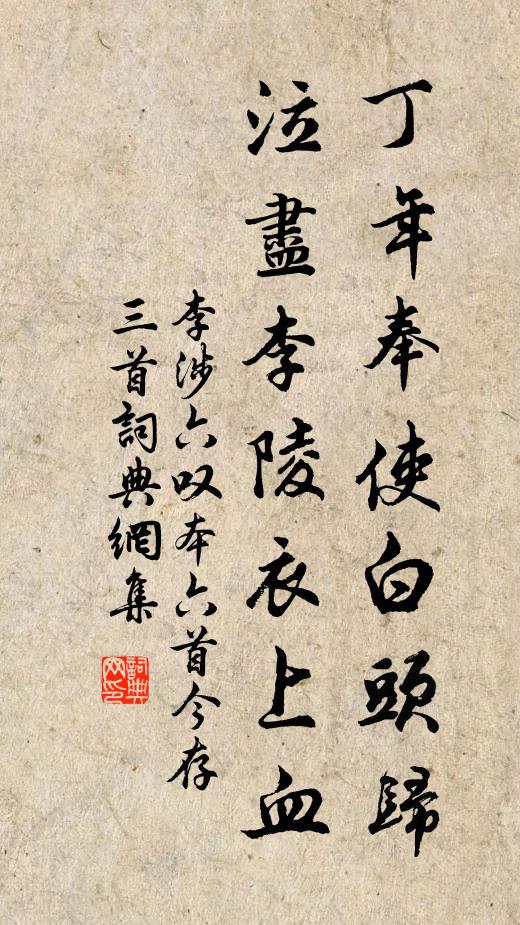 丁年奉使白頭歸
泣盡李陵衣上血
李涉六叹本六首今存
三首詞典網集
詞典
网印